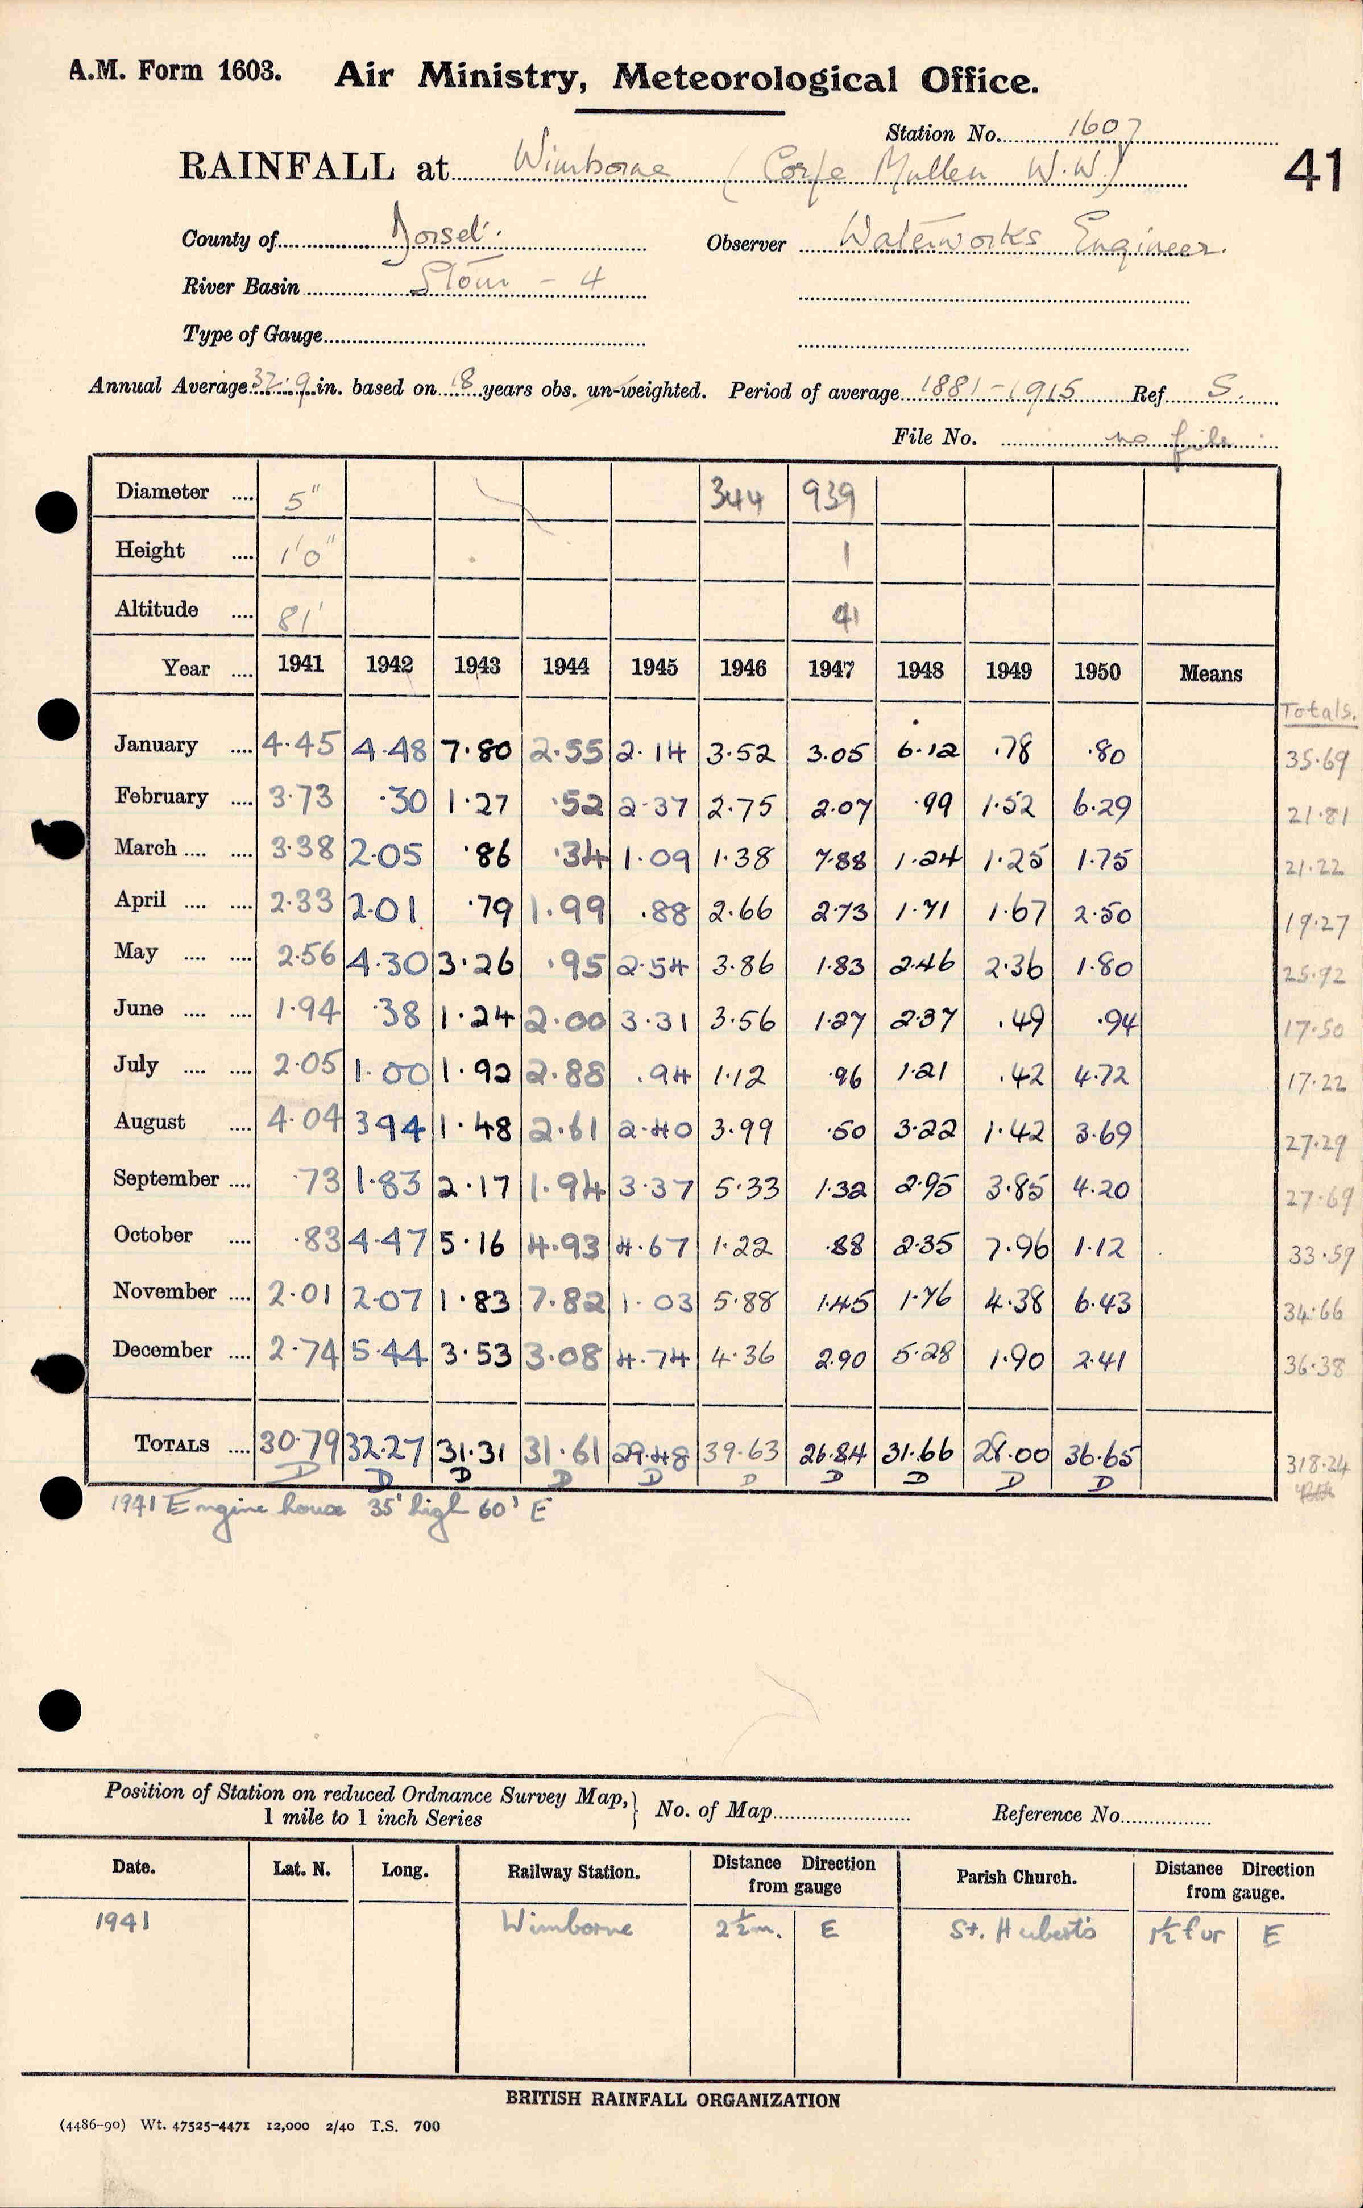 A.M. Form 1603. Air Ministry, Meteorological Office.
Station No. 1607
RAINFALL at Wimborne (Corfe Mullen W.W) 41
County of Dorset. Observer Waterworks Engineer.
River Basin Stour - 4
Type of Gauge
Annual Average 32.9 in. based on 18 years obs. un-weighted. Period of average 1881-1915 Ref S.
File No. no file
Diameter .... 5" 344 939
Height .... 1'0" 1
Altitude .... 81' 41
Year .... 1941 1942 1943 1944 1945 1946 1947 1948 1949 1950 Means
Totals.
January .... 4.45 4.48 7.80 2.55 2.14 3.52 3.05 6.12 .78 .80 35.69
February .... 3.73 .30 1.27 .52 2.37 2.75 2.07 .99 1.52 6.29 21.81
March .... .... 3.38 2.05 .86 .34 1.09 1.38 7.88 1.24 1.25 1.75 21.22
April .... .... 2.33 2.01 .79 1.99 .88 2.66 2.73 1.71 1.67 2.50 19.27
May .... .... 2.56 4.30 3.26 .95 2.54 3.86 1.83 2.46 2.36 1.80 25.92
June .... .... 1.94 .38 1.24 2.00 3.31 3.56 1.27 2.37 .49 .94 17.50
July .... .... 2.05 1.00 1.92 2.88 .94 1.12 .96 1.21 .42 4.72 17.22
August .... 4.04 3.94 1.48 2.61 2.40 3.99 .50 3.22 1.42 3.69 27.29
September .... .73 1.83 2.17 1.94 3.37 5.33 1.32 2.95 3.85 4.20 27.69
October .... .83 4.47 5.16 4.93 4.67 1.22 .88 2.35 7.96 1.12 33.59
November .... 2.01 2.07 1.83 7.82 1.03 5.88 1.45 1.76 4.38 6.43 34.66
December .... 2.74 5.44 3.53 3.08 4.74 4.36 2.90 5.28 1.90 2.41 36.38
TOTALS .... 30.79 32.27 31.31 31.61 29.48 39.63 26.84 31.66 28.00 36.65 318.24
D D D D D D D D D D
1941 Engine house 35' high 60' E
Position of Station on reduced Ordnance Survey Map, 1 mile to 1 inch Series } No. of Map Reference No.
Date. Lat. N. Long. Railway Station. Distance Direction from gauge Parish Church. Distance Direction from gauge.
1941 Wimborne 2½m. E St. Hubert's 1½ fur E
BRITISH RAINFALL ORGANIZATION
(4486-90) Wt. 47525-4471 12,000 2/40 T.S. 700